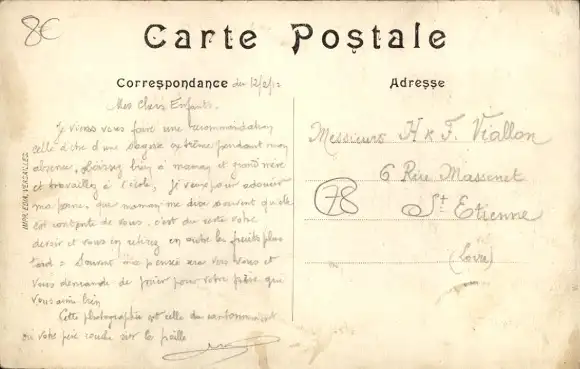 8€
Carte Postale
Correspondance du 12/2/
Adresse
Mes Chers Enfants.
Je viens vous faire une recommandation
celle d'être d'une sagesse extrême pendant mon
absence, obéissez bien à maman et grand'mère
et travaillez à l'école, je veux pour adoucir
ma peine, que maman me dise souvent qu'elle
est contente de vous. c'est du reste votre
devoir et vous en retirez en outre les fruits plus
tard = Souvent ma pensée vers vous et
vous demande de prier pour votre père qui
vous aime bien
Cette photographie est celle du cantonnement
où votre père couche sur la paille
Messieurs H & F. Viallon
6 Rue Massenet
78
St Etienne
(Loire)
IMPR. EDIA, VERSAILLES